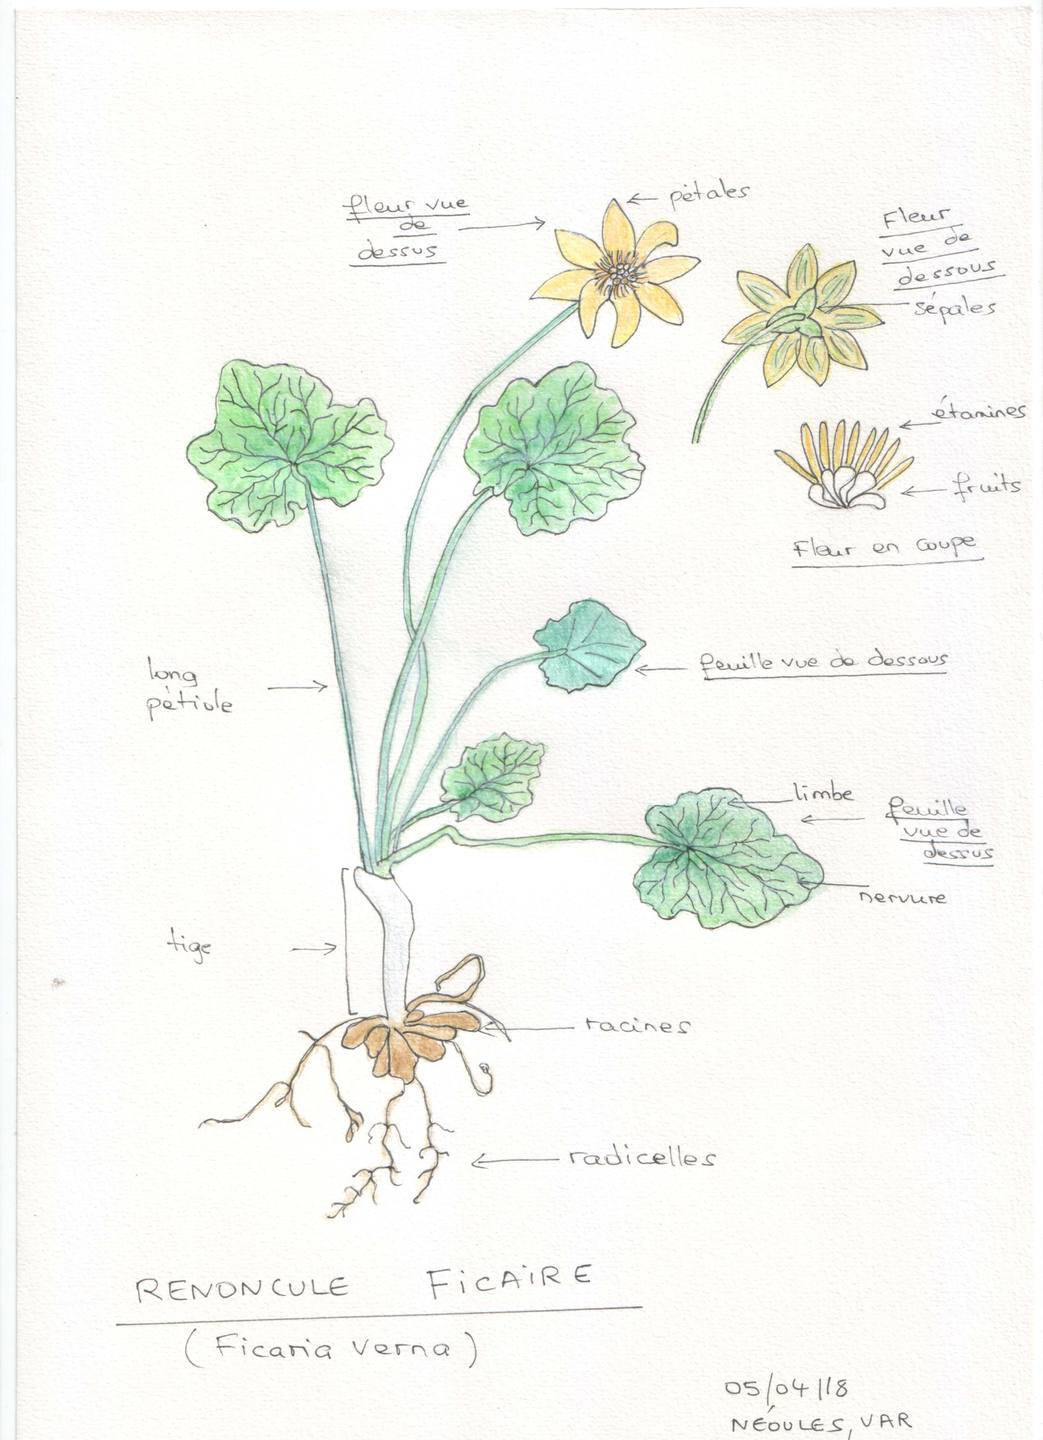 fleur vue
de
dessus
pétales
Fleur
vue de
dessous
sépales
étamines
fruits
Fleur en coupe
long
pétiole
feuille vue de dessous
limbe
feuille
vue de
dessus
nervure
tige
racines
radicelles
RENONCULE FICAIRE
(Ficaria verna)
05/04/18
NÉOULES, VAR